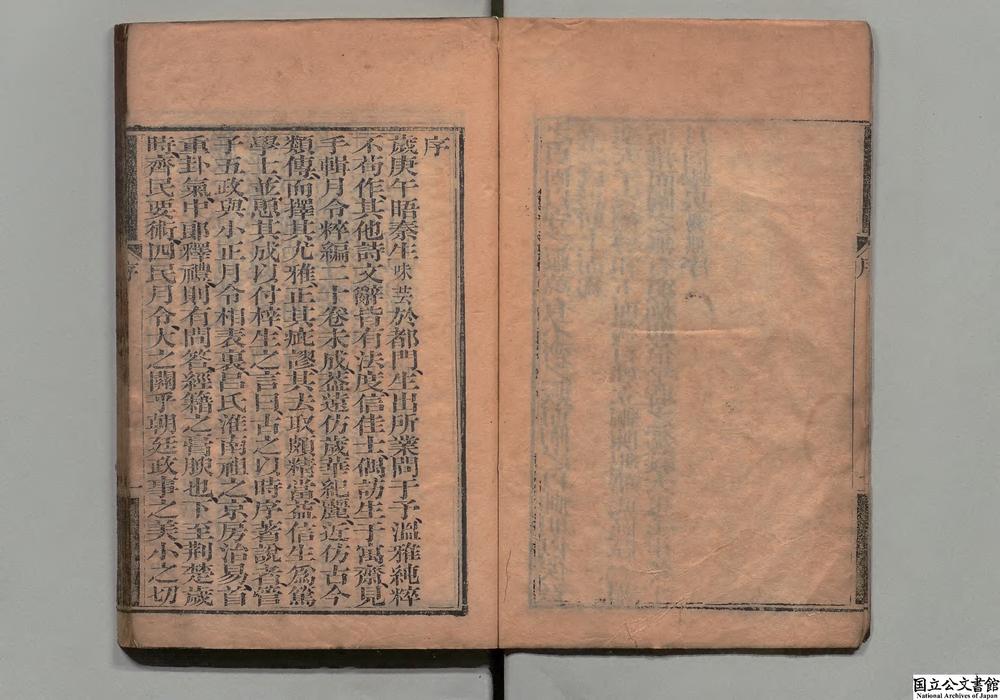 序
歲庚午晤秦生味芸於都門生出所業問于予溫雅純粹
不苟作其他詩文辭皆有法度信佳士偶訪生于寓齋見
手輯月令粹編二十卷未成葢遠仿歲華紀麗近仿古今
類傳而擇其尤雅正其疵謬其去取頗精當益信生爲篤
學士並慫其成以付梓生之言曰古之以時序著說者管
子五政與小正月令相表裏呂氏淮南祖之京房治易首
重卦氣中郞釋禮則有問答經籍之膏腴也下至荆楚歲
時齊民要術四民月令大之關乎朝廷政事之美小之切
序
序
国立公文書館
National Archives of Japan